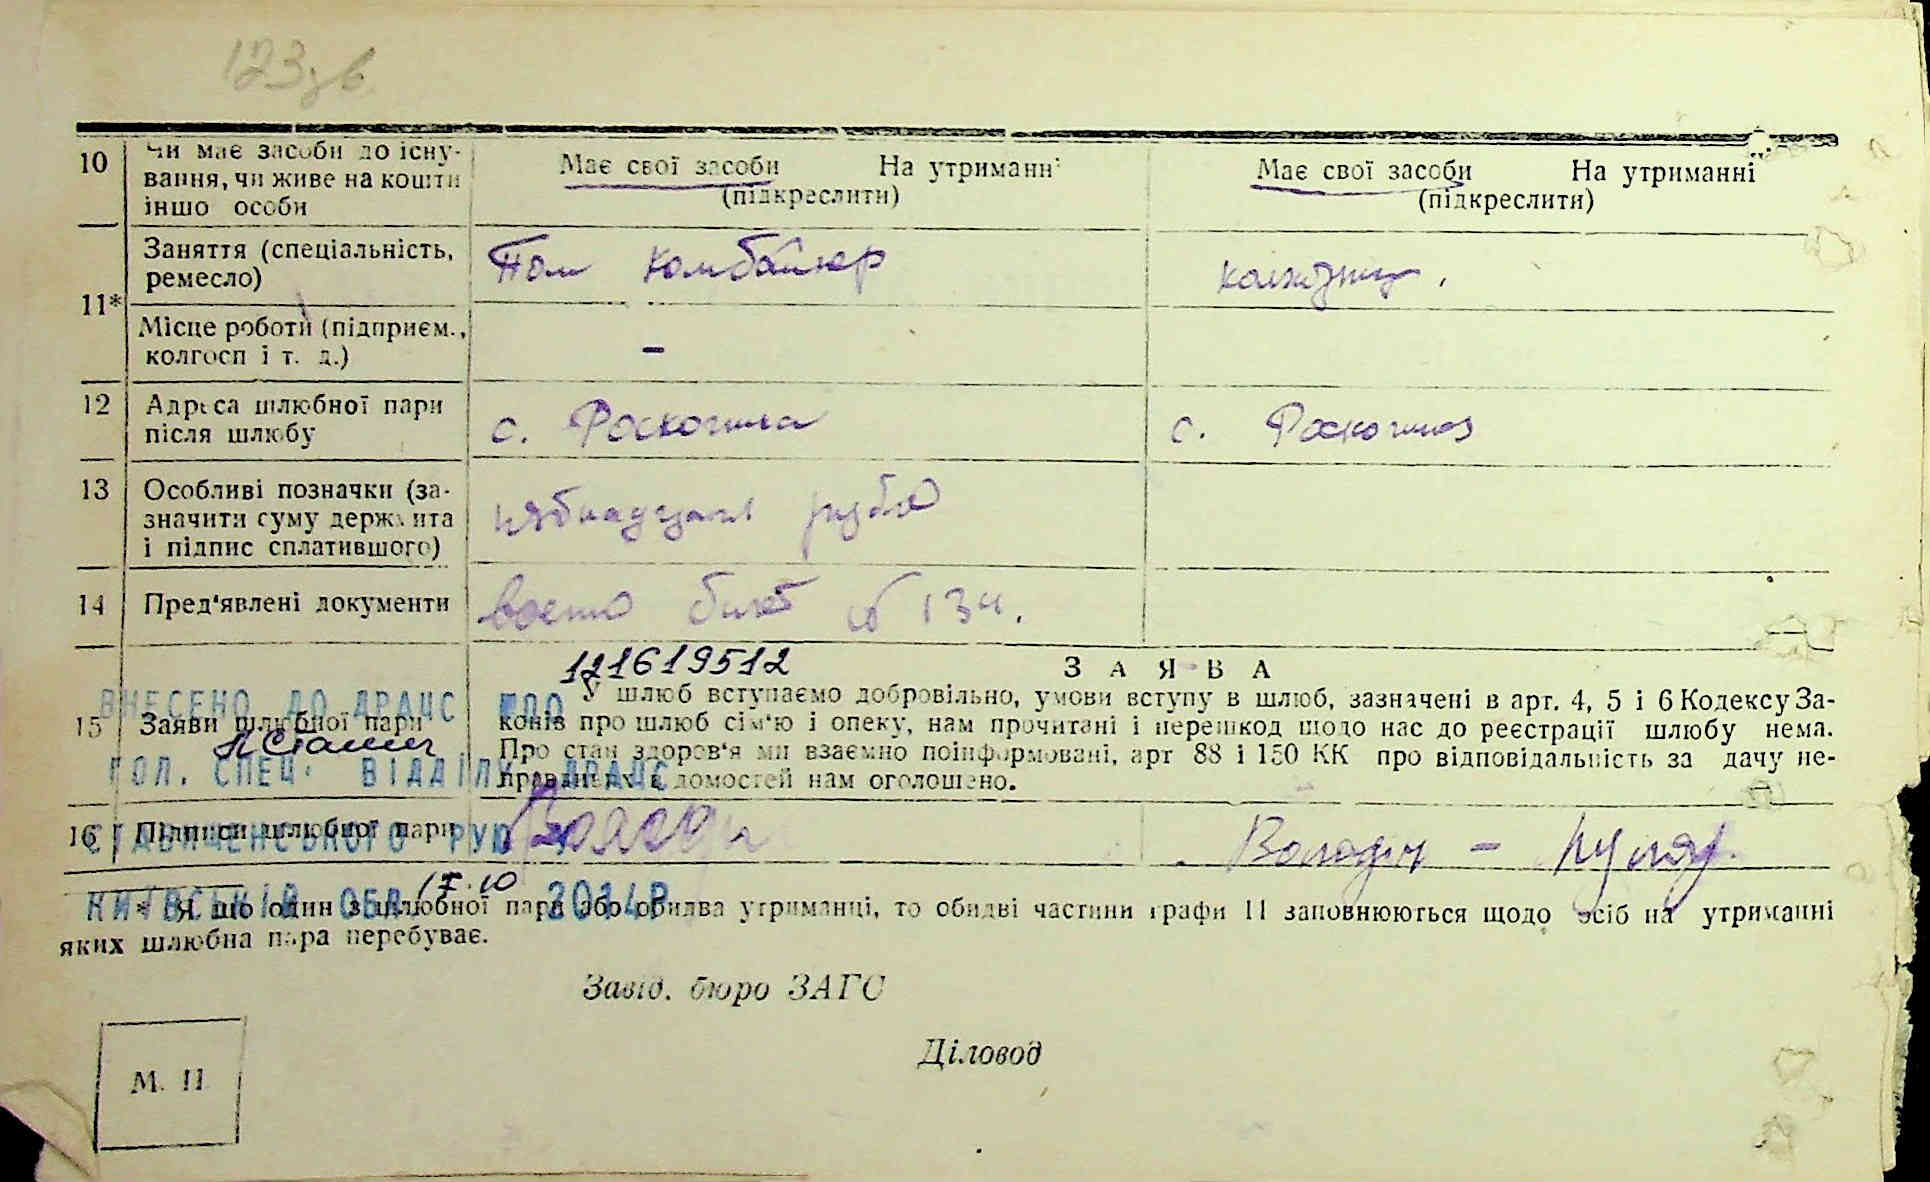 123зв
10 Чи має засоби до існу-
вання, чи живе на кошти
іншо особи
Має свої засоби На утриманні
(підкреслити)
Має свої засоби На утриманні
(підкреслити)
11*
Заняття (спеціальність,
ремесло)
Пом комбайнер
колхозниц
Місце роботи (підприєм.,
колгосп і т. д.)
–
12 Адреса шлюбної пари
після шлюбу
с. Роскошна
с. Роскошна
13 Особливі позначки (за-
значити суму держмита
і підпис сплатившого)
14 Пред'явлені документи
билет
121619512
ЗАЯВА
15 Заяви шлюбної пари
У шлюб вступаємо добровільно, умови вступу в шлюб, зазначені в арт. 4, 5 і 6 Кодексу За-
конів про шлюб сім'ю і опеку, нам прочитані і перешкод щодо нас до реєстрації шлюбу нема.
Про стан здоров'я ми взаємно поінформовані, арт 88 і 150 КК про відповідальність за дачу не-
правдивих відомостей нам оголошено.
ВНЕСЕНО ДО ДРАЦС ПРО
ГОЛ. СПЕЦ. ВІДДІЛУ ДРАЦС
СТАВИЩЕНСЬКОГО РУЮ
КИЇВСЬКІЙ ОБЛ. 17.10 2014Р
16 Підписи шлюбної пари
* Якщо один з шлюбної пари або обидва утриманці, то обидві частини графи 11 заповнюються щодо осіб на утриманні
яких шлюбна пара перебуває.
Завід. бюро ЗАГС
Діловод
М. П.